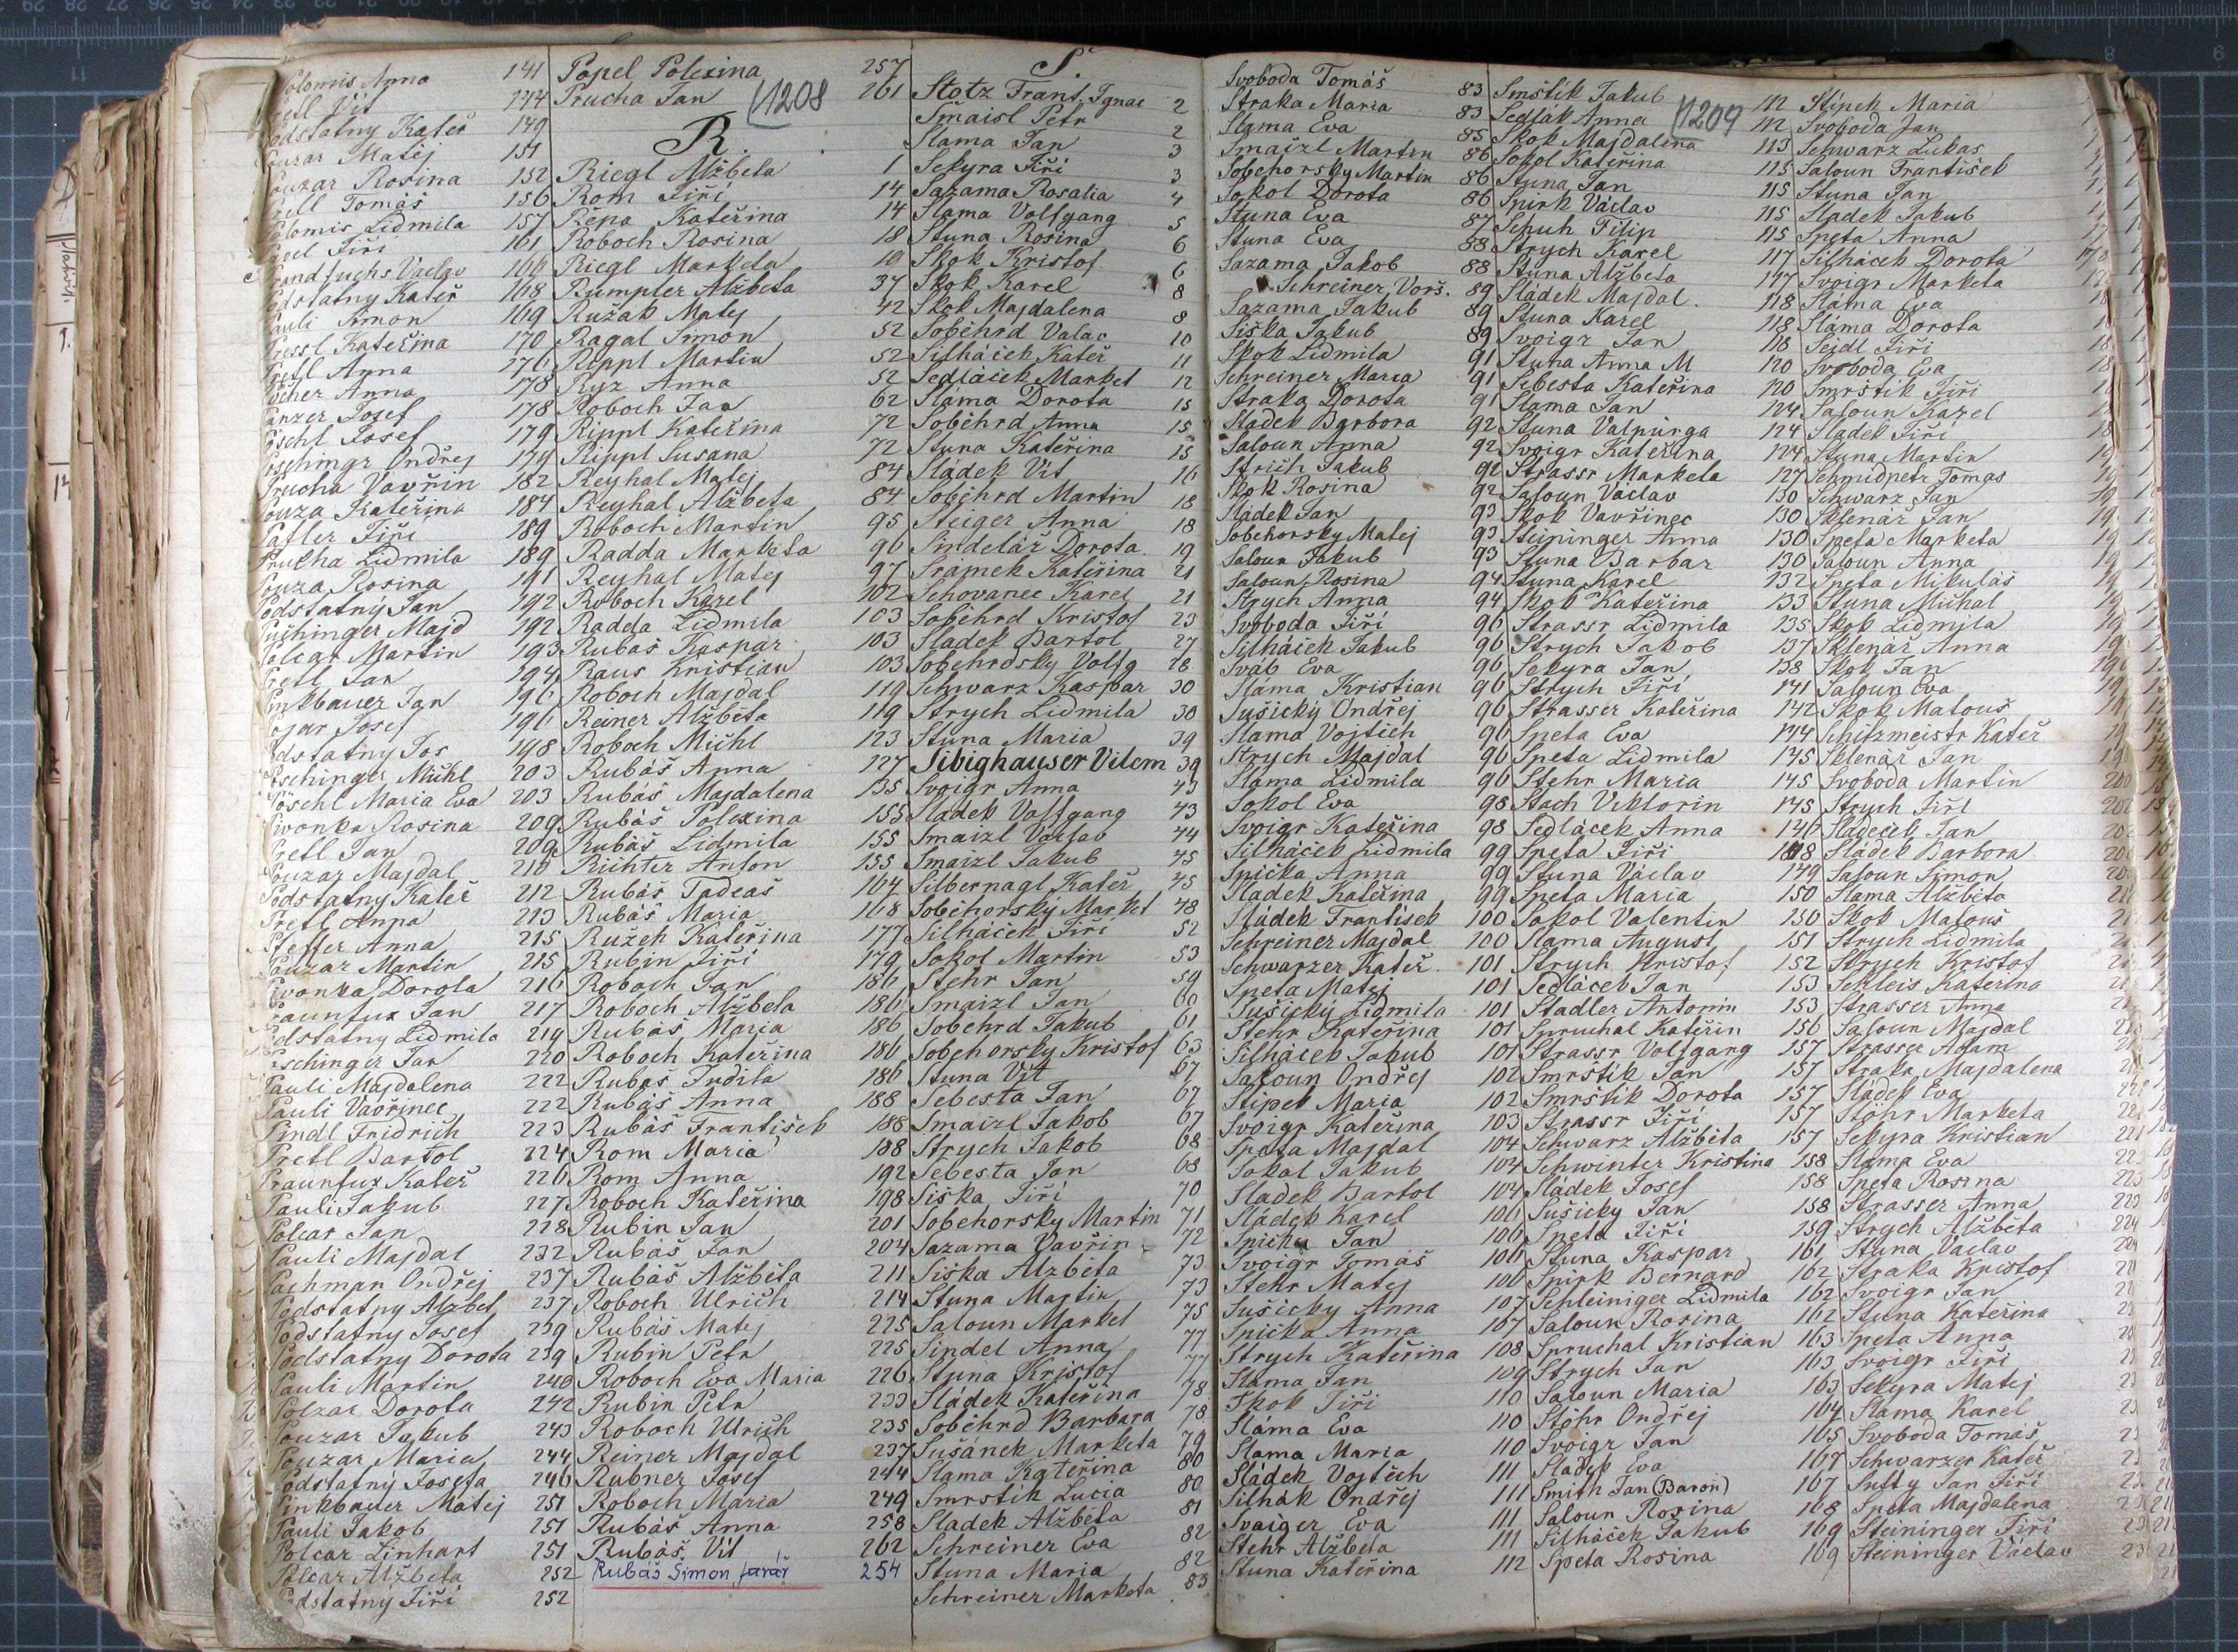 Polomis Anna 141
Pretl Vit 144
Podstatny Kateř 149
Pouzar Matěj 151
Pouzar Rosina 152
Pretl Tomáš 156
Polomis Lidmila 157
Jiří 161
Vaclav 166
Podstatny Kateř 168
Pauli Simon 169
Pressl Kateřina 170
Pretl Anna 176
Anna 178
Panzer Josef 178
Pöschl Josef 179
Poschingr Ondřej 179
Prucha Vavřin 182
Pouza Kateřina 184
Patler Jiří 189
Prucha Lidmila 189
Pouza Rosina 191
Podstatný Jan 192
Puchinger Majd 192
Polcar Martin 193
Pretl Jan 194
Pinkbauer Jan 196
Josef 196
Podstatny Jos 198
Poschinger Michl 203
Pöschl Maria Eva 203
Pivonka Rosina 209
Pretl Jan 209
Pouzar Majdal 210
Podstatny Kateř 212
Pretl Anna 213
Pfeffer Anna 215
Pouzar Martin 215
Pivonka Dorota 216
Praunfux Jan 217
Podstatny Lidmila 219
Poschinger Jan 220
Pauli Majdalena 222
Pauli Vavřinec 222
Pindl Fridrich 223
Pretl Bartol 224
Praunfux Kateř 226
Pauli Jakub 227
Polcar Jan 228
Pauli Majdal 232
Pachman Ondřej 237
Podstatny Alžbet 237
Podstatny Josef 239
Podstatny Dorota 239
Pauli Martin 240
Polzar Dorota 242
Pouzar Jakub 243
Pouzar Maria 244
Podstatný Josefa 246
Pinkbauer Matěj 251
Pauli Jakob 251
Polcar Linhart 251
Polcar Alžběta 252
Podstatny Jiří 252
Popel Polexina 257
Prucha Jan 261
1208
R.
Riegl Alžběta 1
Rom Jiří 14
Řepa Kateřina 14
Roboch Rosina 18
Riegl Marketa 18
Rumpler Alžběta 37
Ružak Matej 42
Ragal Simon 52
Rippl Martin 52
Ryz Anna 52
Roboch Jan 62
Rippl Kateřina 72
Rippl Susana 72
Reyhal Matej 84
Reyhal Alžběta 84
Roboch Martin 95
Radda Marketa 96
Reyhal Matej 97
Roboch Karel 102
Radda Lidmila 103
Rubáš Kaspar 103
Raus Kristian 103
Roboch Majdal 119
Reiner Alžběta 119
Roboch Michl 123
Rubáš Anna 127
Rubáš Majdalena 135
Rubáš Polexina 155
Rubáš Lidmila 155
Richter Anton 155
Rubáš Tadeaš 164
Rubáš Maria 168
Ružek Kateřina 177
Rubin Jiří 179
Roboch Jan 186
Roboch Alžběta 186
Rubáš Maria 186
Roboch Kateřina 186
Rubáš Judita 186
Rubáš Anna 188
Rubáš František 188
Rom Maria 188
Rom Anna 192
Roboch Kateřina 198
Rubin Jan 201
Rubáš Jan 204
Rubáš Alžběta 211
Roboch Ulrich 214
Rubáš Matej 225
Rubin Petr 225
Roboch Eva Maria 226
Rubin Petr 233
Roboch Ulrich 235
Reiner Majdal 237
Rubner Josef 244
Roboch Maria 249
Rubáš Anna 258
Rubáš Vit 262
Rubáš Simon, farář 254
S.
Stotz Frant. Ignac 2
Šmaisl Petr 2
Slama Jan 3
Sekyra Jiří 3
Sazama Rosalia 4
Slama Volfgang 5
Stuna Rosina 6
Skok Kristof 6
Skok Karel 8
Skok Majdalena 8
Soběhrd Valac 10
Silháček Kateř 11
Sedláček Market 12
Slama Dorota 15
Soběhrd Anna 15
Stuna Kateřina 15
Sládek Vit 16
Soběhrd Martin 18
Steiger Anna 18
Šindelář Dorota 19
Šramek Kateřina 21
Schovanec Karel 21
Soběhrd Kristof 23
Sladek Bartol 27
Soběhrdský Volfg 28
Schwarz Kaspar 30
Strych Lidmila 30
Stuna Maria 39
Sibighauser Vilem 39
Svoigr Anna 43
Sladek Volfgang 43
Smaizl Václav 44
Smaizl Jakub 45
Silbernagl Kateř 45
Soběhorský Market 48
Silháček Jiří 52
Sokol Martin 53
Stehr Jan 59
Smaizl Jan 60
Soběhrd Jakub 61
Soběhorsky Kristof 63
Stuna Vit 67
Šebesta Jan 67
Smaizl Jakob 67
Strych Jakob 68
Sebesta Jan 68
Šiška Jiří 70
Soběhorsky Martin 71
Sazama Vavřin 72
Šiška Alžběta 73
Stuna Martin 73
Saloun Market 75
Sindel Anna 77
Stuna Kristof 77
Sládek Kateřina 78
Soběhrd Barbara 78
Sušánek Marketa 79
Slama Kateřina 80
Smrstik Lucia 80
Sladek Alžběta 81
Schreiner Eva 82
Stuna Maria 82
Schreiner Marketa 83
Svoboda Tomáš 83
Straka Maria 83
Slama Eva 85
Smaizl Martin 86
Soběhorsky Martin 86
Sokol Dorota 86
Stuna Eva 87
Stuna Eva 88
Sazama Jakob 88
Schreiner Vorš. 89
Sazama Jakub 89
Šiška Jakub 89
Skok Lidmila 91
Schreiner Maria 91
Straka Dorota 91
Sladek Barbora 92
Saloun Anna 92
Strich Jakub 92
Skok Rosina 92
Sladek Jan 93
Sobehorsky Matej 93
Saloun Jakub 93
Saloun Rosina 94
Strych Anna 94
Svoboda Jiří 96
Silháček Jakub 96
Šváb Eva 96
Sláma Kristian 96
Sušický Ondřej 96
Slama Vojtěch 96
Strych Majdal 96
Slama Lidmila 96
Sokol Eva 98
Svoigr Kateřina 98
Silháček Lidmila 99
Spička Anna 99
Sladek Kateřina 99
Sládek František 100
Schreiner Majdal 100
Schwarzer Kateř. 101
Speta Matej 101
Sušicky Lidmila 101
Stehr Kateřina 101
Silháček Jakub 101
Saloun Ondřej 102
Stipek Maria 102
Svoigr Kateřina 103
Speta Majdal 104
Sokal Jakub 104
Sladek Bartol 104
Sládek Karel 106
Spička Jan 106
Svoigr Tomáš 106
Stehr Matej 106
Sušicky Anna 107
Spička Anna 107
Strych Kateřina 108
Slama Jan 109
Skok Jiří 110
Sláma Eva 110
Slama Maria 110
Sládek Vojtěch 111
Silhák Ondřej 111
Svaiger Eva 111
Stehr Alžběta 111
Stuna Kateřina 112
Smištik Jakub 112
Sedlák Anna 112
1209
Skok Majdalena 113
Sokol Kateřina 115
Stuna Jan 115
Spirk Václav 115
Schuh Filip 115
Strych Karel 117
Stuna Alžběta 117
Sládek Majdal. 118
Stuna Karel 118
Svoigr Jan 118
Stuna Anna M 120
Sebesta Kateřina 120
Slama Jan 124
Stuna Valpurga 124
Svoigr Kateřina 124
Strassr Marketa 127
Saloun Václav 130
Skok Vavřinec 130
Steininger Anna 130
Stuna Barbar 130
Stuna Karel 132
Skok Kateřina 133
Strassr Lidmila 135
Strych Jakob 137
Sekyra Jan 138
Strych Jiří 141
Strasser Kateřina 142
Speta Eva 144
Speta Lidmila 145
Stehr Maria 145
Stach Viktorin 145
Sedláček Anna 146
Speta Jiří 148
Stuna Václav 149
Speta Maria 150
Sokol Valentin 150
Slama August 151
Strych Kristof 152
Sedláček Jan 153
Stadler Antonín 153
Spruchal Kateřin 156
Strassr Volfgang 157
Smrstik Jan 157
Smrštik Dorota 157
Strassr Jiří 157
Schwarz Alžběta 157
Schwinter Kristina 158
Sládek Josef 158
Sušicky Jan 158
Speta Jiří 159
Stuna Kaspar 161
Spirk Bernard 162
Schleiniger Lidmila 162
Saloun Rosina 162
Spruchal Kristian 163
Strych Jan 163
Saloun Maria 163
Stöhr Ondřej 164
Svoigr Jan 165
Sladek Eva 167
Smith Jan (Baron) 167
Saloun Rosina 168
Silháček Jakub 169
Speta Rosina 169
Stípek Maria
Svoboda Jan
Schwarz Lukas
Saloun František
Stuna Jan
Sladek Jakub
Speta Anna
Silháček Dorota
Svoigr Marketa
Sláma Eva
Sláma Dorota
Sejdl Jiří
Svoboda Eva
Smrštik Jiří
Saloun Karel
Sladek Jiří
Stuna Martin
Schmidpetr Tomas
Schwarz Jan
Sklenář Jan
Speta Marketa
Saloun Anna
Speta Mikuláš
Stuna Michal
Skok Lidmila
Sklenář Anna
Skok Jan
Saloun Eva
Skok Matouš
Schitzmeistr Kateř
Sklenář Jan
Svoboda Martin
Strych Jiří
Sladeček Jan
Sládek Barbora
Saloun Simon
Slama Alžběta
Skok Matouš
Strych Lidmila
Strych Kristof
Schleis Kateřina
Strasser Anna
Saloun Majdal
Strasser Adam
Straka Majdalena
Sládek Eva
Stöhr Marketa
Sekyra Kristian
Slama Eva
Speta Rosina
Strasser Anna
Strych Alžběta
Stuna Vaclav
Straka Kristof
Svoigr Jan
Stuna Kateřina
Speta Anna
Svoigr Jiří
Sekyra Matej
Slama Karel
Svoboda Tomáš
Schwarzer Kateř
Sutty Jan Jiří
Speta Majdalena
Steininger Jiří
Steininger Václav